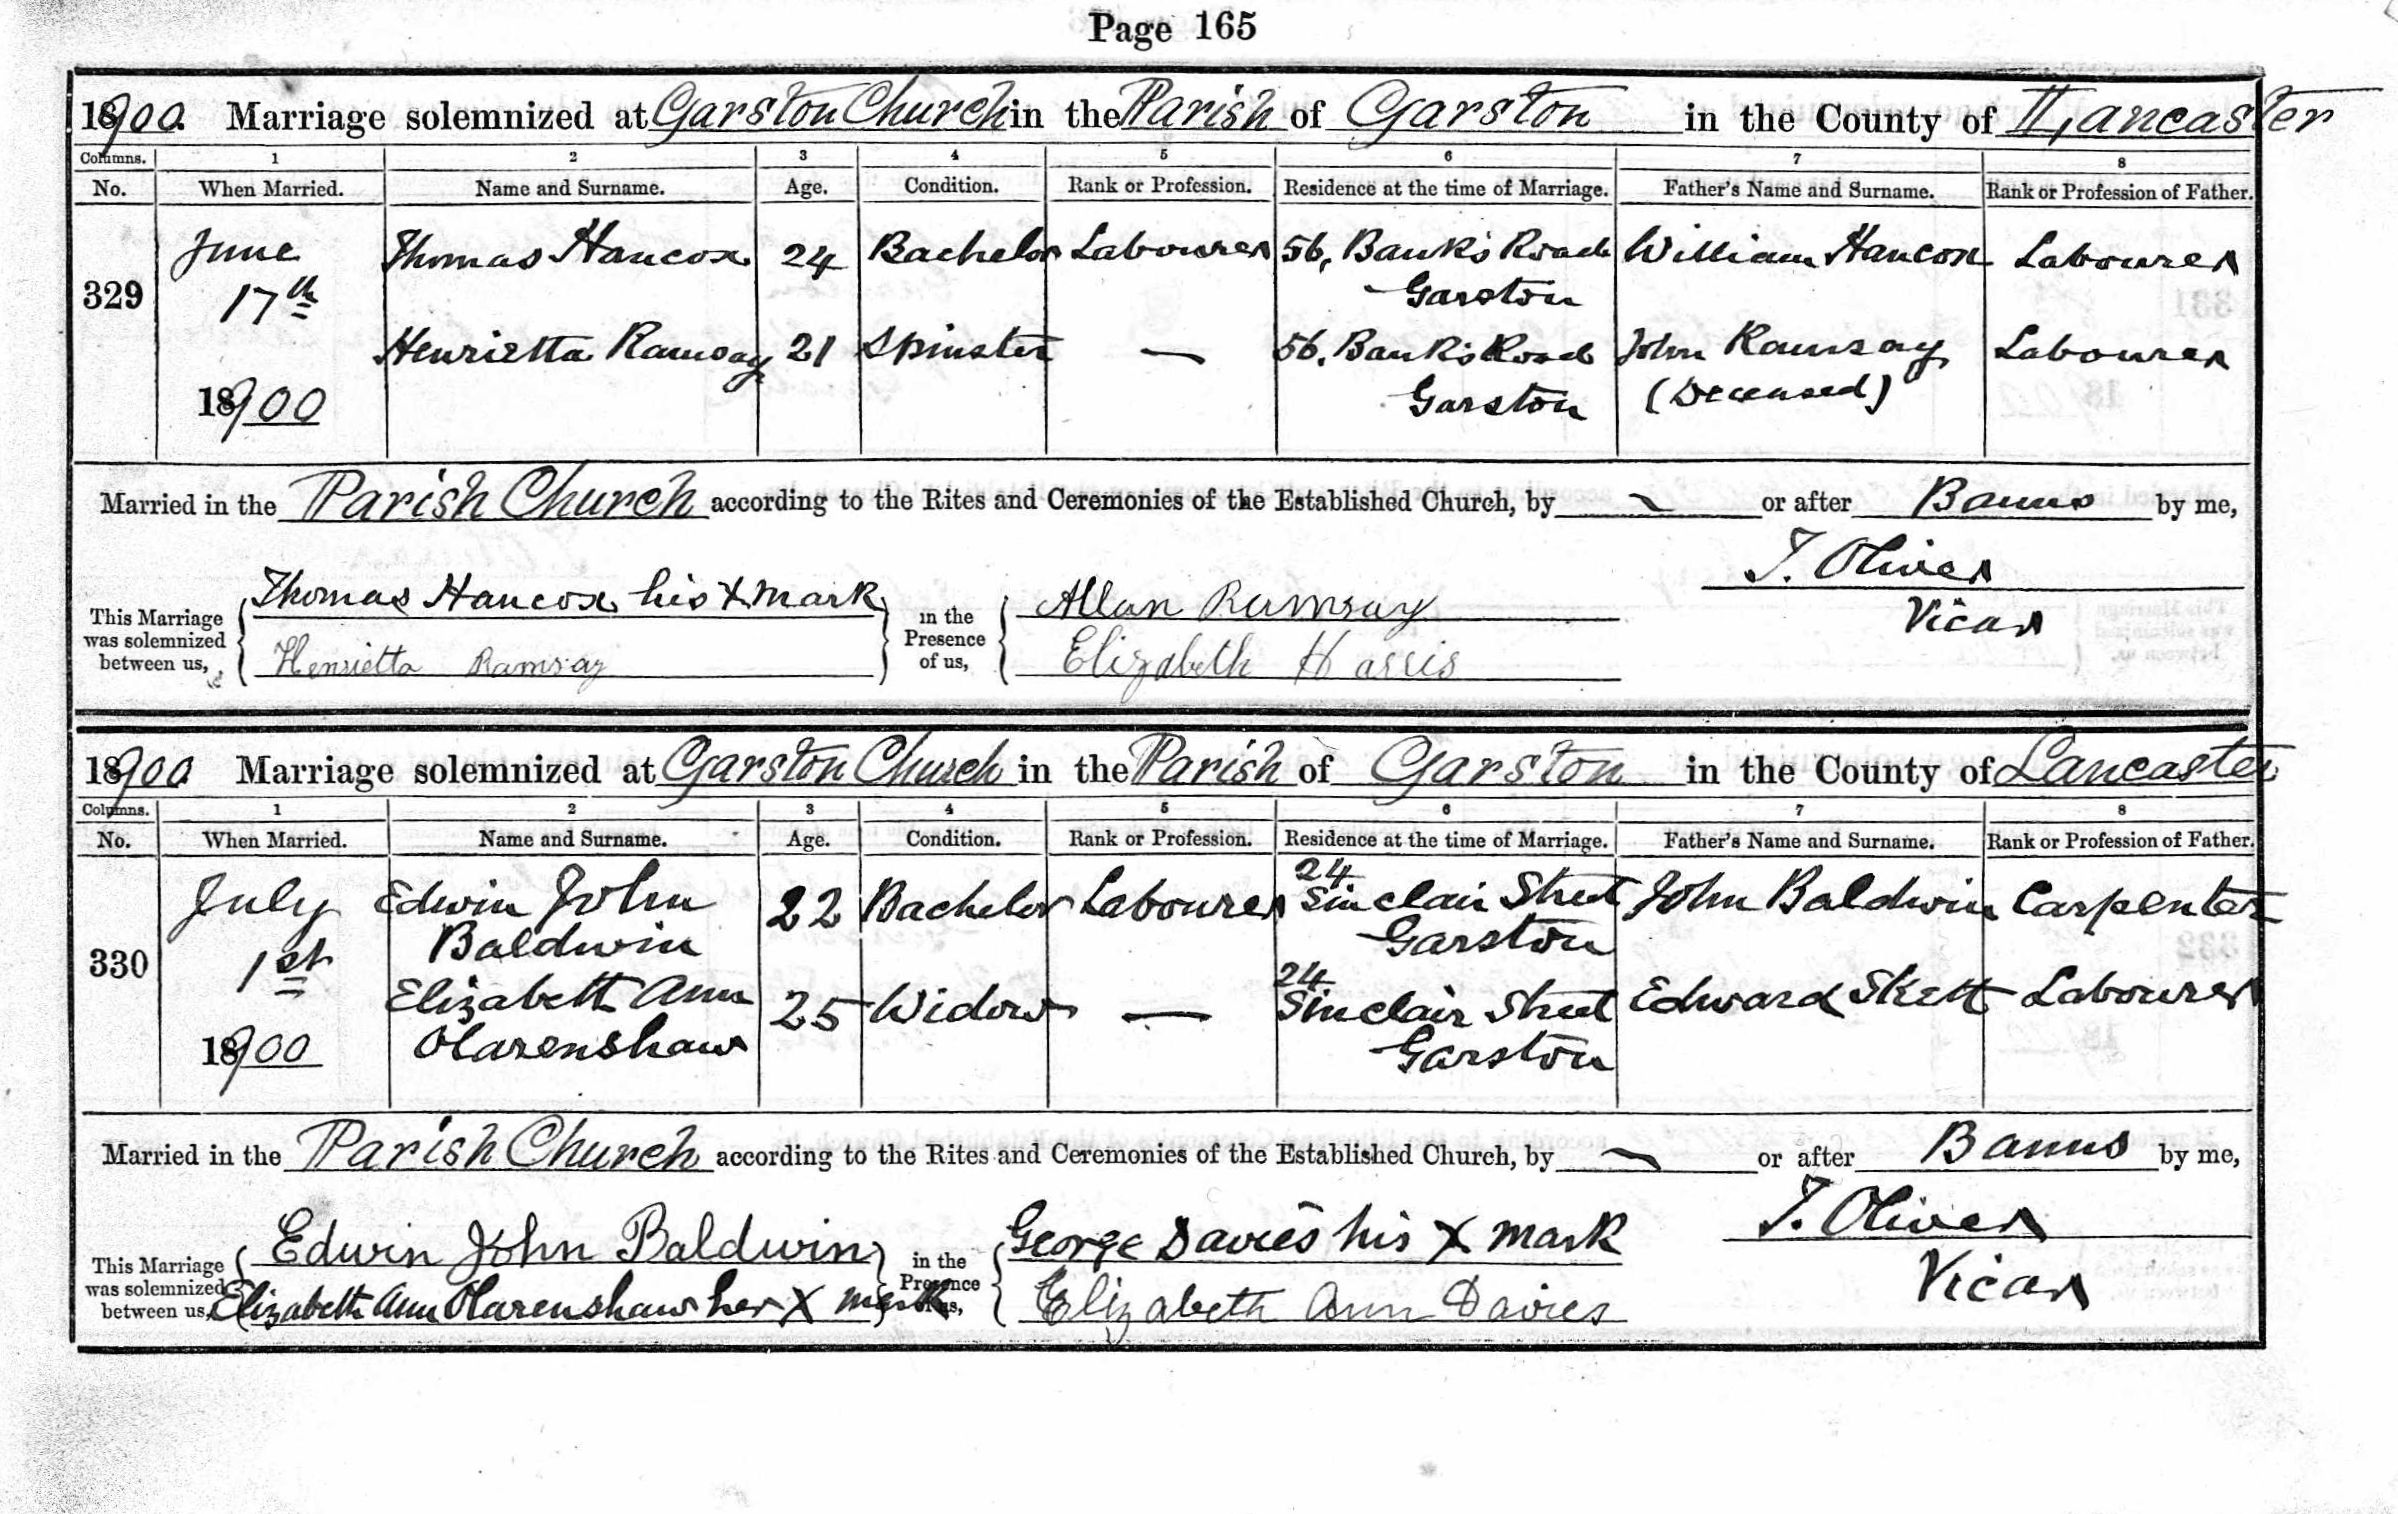 Page 165
1900. Marriage solemnized at Garston Church in the Parish of Garston in the County of Lancaster
Columns. 1 2 3 4 5 6 7 8
No. When Married. Name and Surname. Age. Condition. Rank or Profession. Residence at the time of Marriage. Father's Name and Surname. Rank or Profession of Father.
June Thomas Hancox 24 Bachelor Labourer 56, Banks Road William Hancox Labourer
329 17th Garston
Henrietta Ramsay 21 Spinster — 56, Banks Road John Ramsay Labourer
1900 Garston (Deceased)
Married in the Parish Church according to the Rites and Ceremonies of the Established Church, by — or after Banns by me,
Thomas Hancox his X mark Allan Ramsay T. Oliver
This Marriage was solemnized between us, in the Presence of us, Vicar
Henrietta Ramsay Elizabeth Harris
1900 Marriage solemnized at Garston Church in the Parish of Garston in the County of Lancaster
Columns. 1 2 3 4 5 6 7 8
No. When Married. Name and Surname. Age. Condition. Rank or Profession. Residence at the time of Marriage. Father's Name and Surname. Rank or Profession of Father.
24
July Edwin John 22 Bachelor Labourer Sinclair Street John Baldwin Carpenter
Baldwin Garston
330 1st 24
Elizabeth Ann 25 Widow — Sinclair Street Edward Skett Labourer
1900 Olarenshaw Garston
Married in the Parish Church according to the Rites and Ceremonies of the Established Church, by — or after Banns by me,
Edwin John Baldwin George Davies his X mark T. Oliver
This Marriage was solemnized between us, in the Presence of us, Vicar
Elizabeth Ann Olarenshaw her X mark Elizabeth Ann Davies